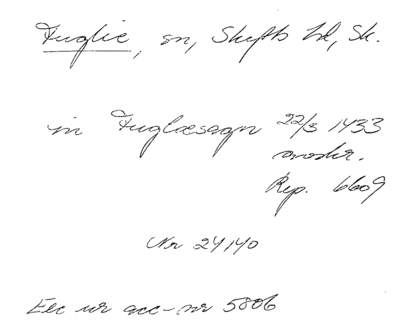 Fuglie, sn, Skytts hd, Sk.
in Fuglæsagn 22/3 1433
avskr.
Rep. 6609
Nr 24140
Exc ur acc-nr 5806